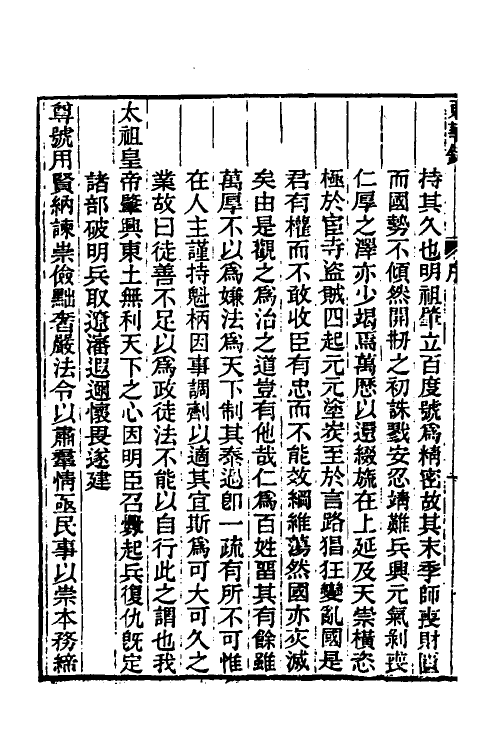 東華錄 序
持其久也明祖肇立百度號為精密故其末季師喪財匱
而國勢不傾然開剏之初誅戮安忍靖難兵興元氣剝喪
仁厚之澤亦少竭焉萬歷以還綴旒在上延及天崇橫恣
極於宦寺盜賊四起元元塗炭至於言路猖狂變亂國是
君有權而不敢收臣有忠而不能效綱維蕩然國亦灾滅
矣由是觀之為治之道豈有他哉仁為百姓畱其有餘雖
萬厚不以為嫌法為天下制其泰過卽一疏有所不可惟
在人主謹持魁柄因事調劑以適其宜斯為可大可久之
業故曰徒善不足以為政徒法不能以自行此之謂也我
太祖皇帝肇興東土無利天下之心因明臣召釁起兵復仇旣定
諸部破明兵取遼瀋遐邇懷畏遂建
尊號用賢納諫崇儉黜奢嚴法令以肅羣情亟民事以崇本務締